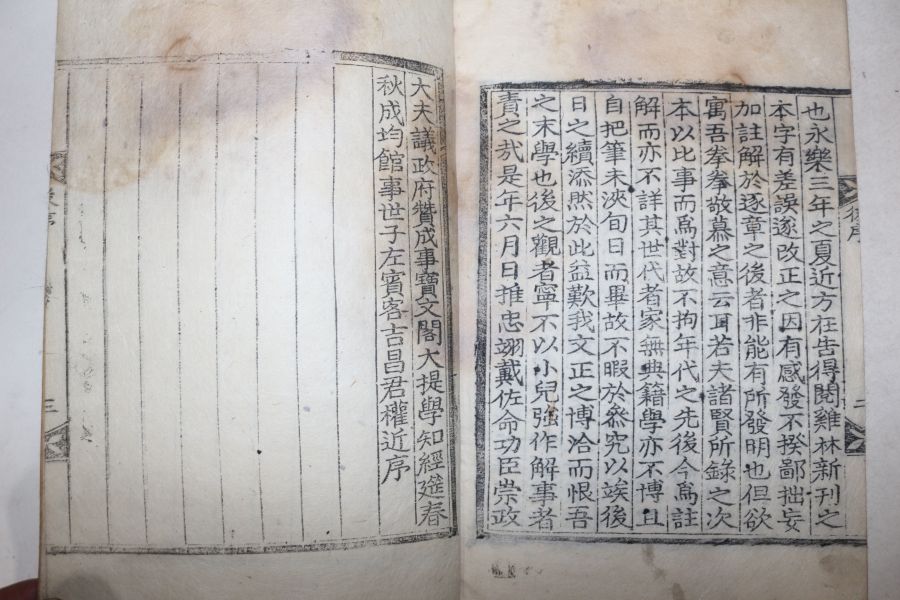 也永樂三年之夏近方在告得閱雞林新刊之
本字有差誤逐改正之因有感發不揆鄙拙妄
加註解於逐章之後者非能有所發明也但欲
寓吾拳拳敬慕之意云耳若夫諸賢所錄之次
本以比事而爲對故不拘年代之先後今爲註
解而亦不詳其世代者家無典籍學亦不博且
自把筆未浹旬日而畢故不暇於叅究以竢後
日之續添然於此益歎我文正之博洽而恨吾
之末學也後之觀者寧不以小兒强作解事者
責之㢤是年六月日推忠翊戴佐命功臣崇政
大夫議政府贊成事寶文閣大提學知經筵春
秋成均館事世子左賓客吉昌君權近序
後序
二
三